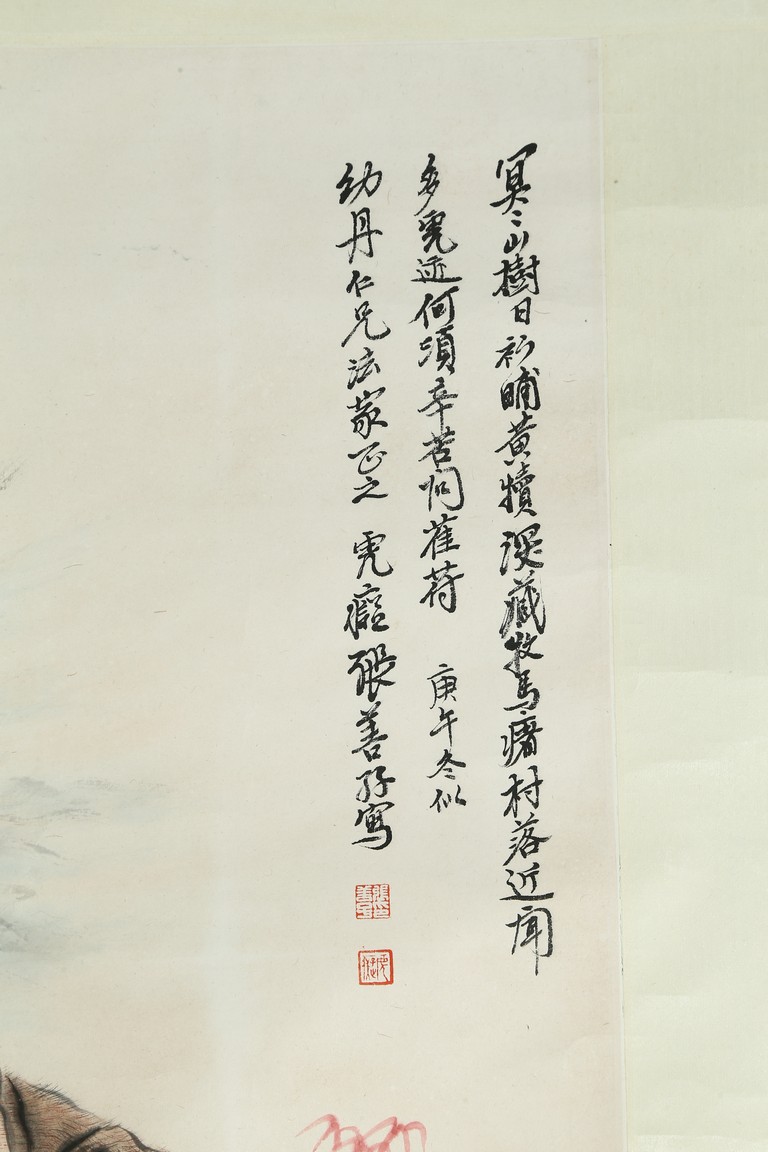 冥〻山樹日初晡黄犢深藏牧馬瘏村落近聞
多虎迹何須辛苦問萑苻 庚午冬似
幼丹仁兄法家正之 虎癡張善孖寫